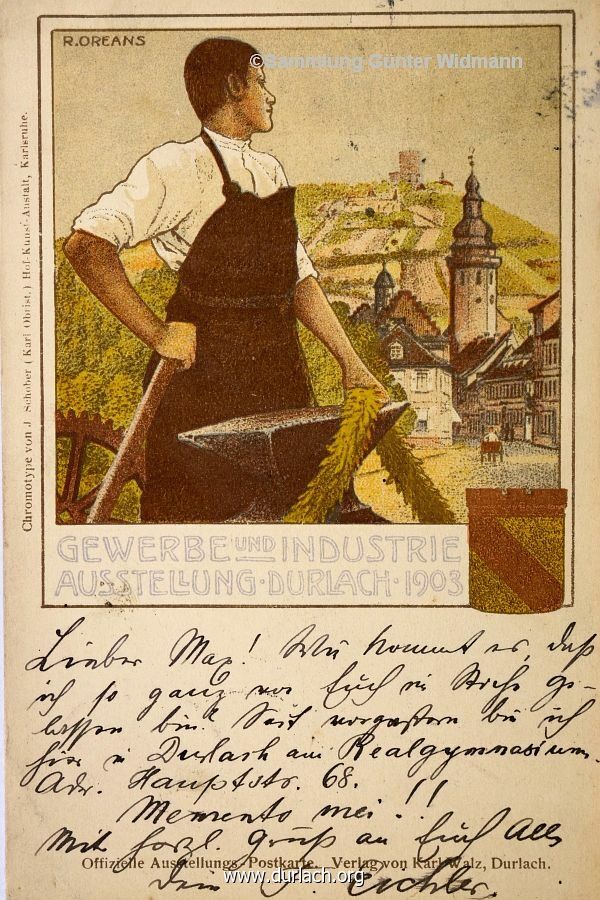 R. OREANS
©Sammlung Günter Widmann
Chromotype von J. Schober (Karl Obrist.) Hof-Kunst-Anstalt, Karlsruhe.
GEWERBE UND INDUSTRIE
AUSSTELLUNG · DURLACH · 1903
Lieber Max! Wie kommt es, daß
ich so ganz von Euch in Stiche ge-
lassen bin? Seit vorgestern bin ich
hier in Durlach am Realgymnasium.
Adr. Hauptstr. 68.
Memento mei!!!
Mit herzl. Gruß an Euch Alle
Offizielle Ausstellungs-Postkarte. Verlag von Karl Walz, Durlach.
Dein J. Eichler.
www.durlach.org